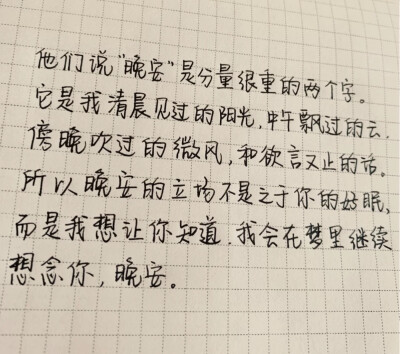 他们说“晚安”是分量很重的两个字。
它是我清晨见过的阳光,中午飘过的云.
傍晚吹过的微风,和欲言又止的话。
所以晚安的立场不是之于你的好眠、
而是我想让你知道.我会在梦里继续
想念你,晚安。